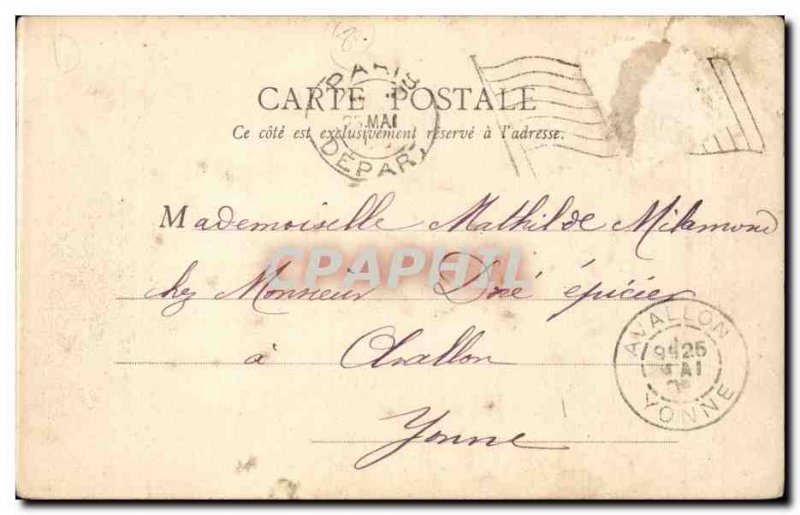 PARIS
25 MAI
DEPART
CARTE POSTALE
Ce côté est exclusivement réservé à l'adresse.
Mademoiselle Mathilde
chez Monsieur Doré épicier
à Avallon
Yonne
CPAPHIL
AVALLON
25
MAI
YONNE